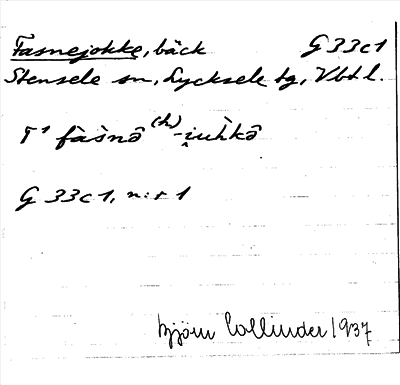 Fasnejokke, bäck G 33c1
Stensele sn, Lycksele tg, Vbtl.
T¹ fàs̀nô⁽ʰ⁾-i̯uh̀kô
G 33c1, n:r 1
Björn Collinder 1937